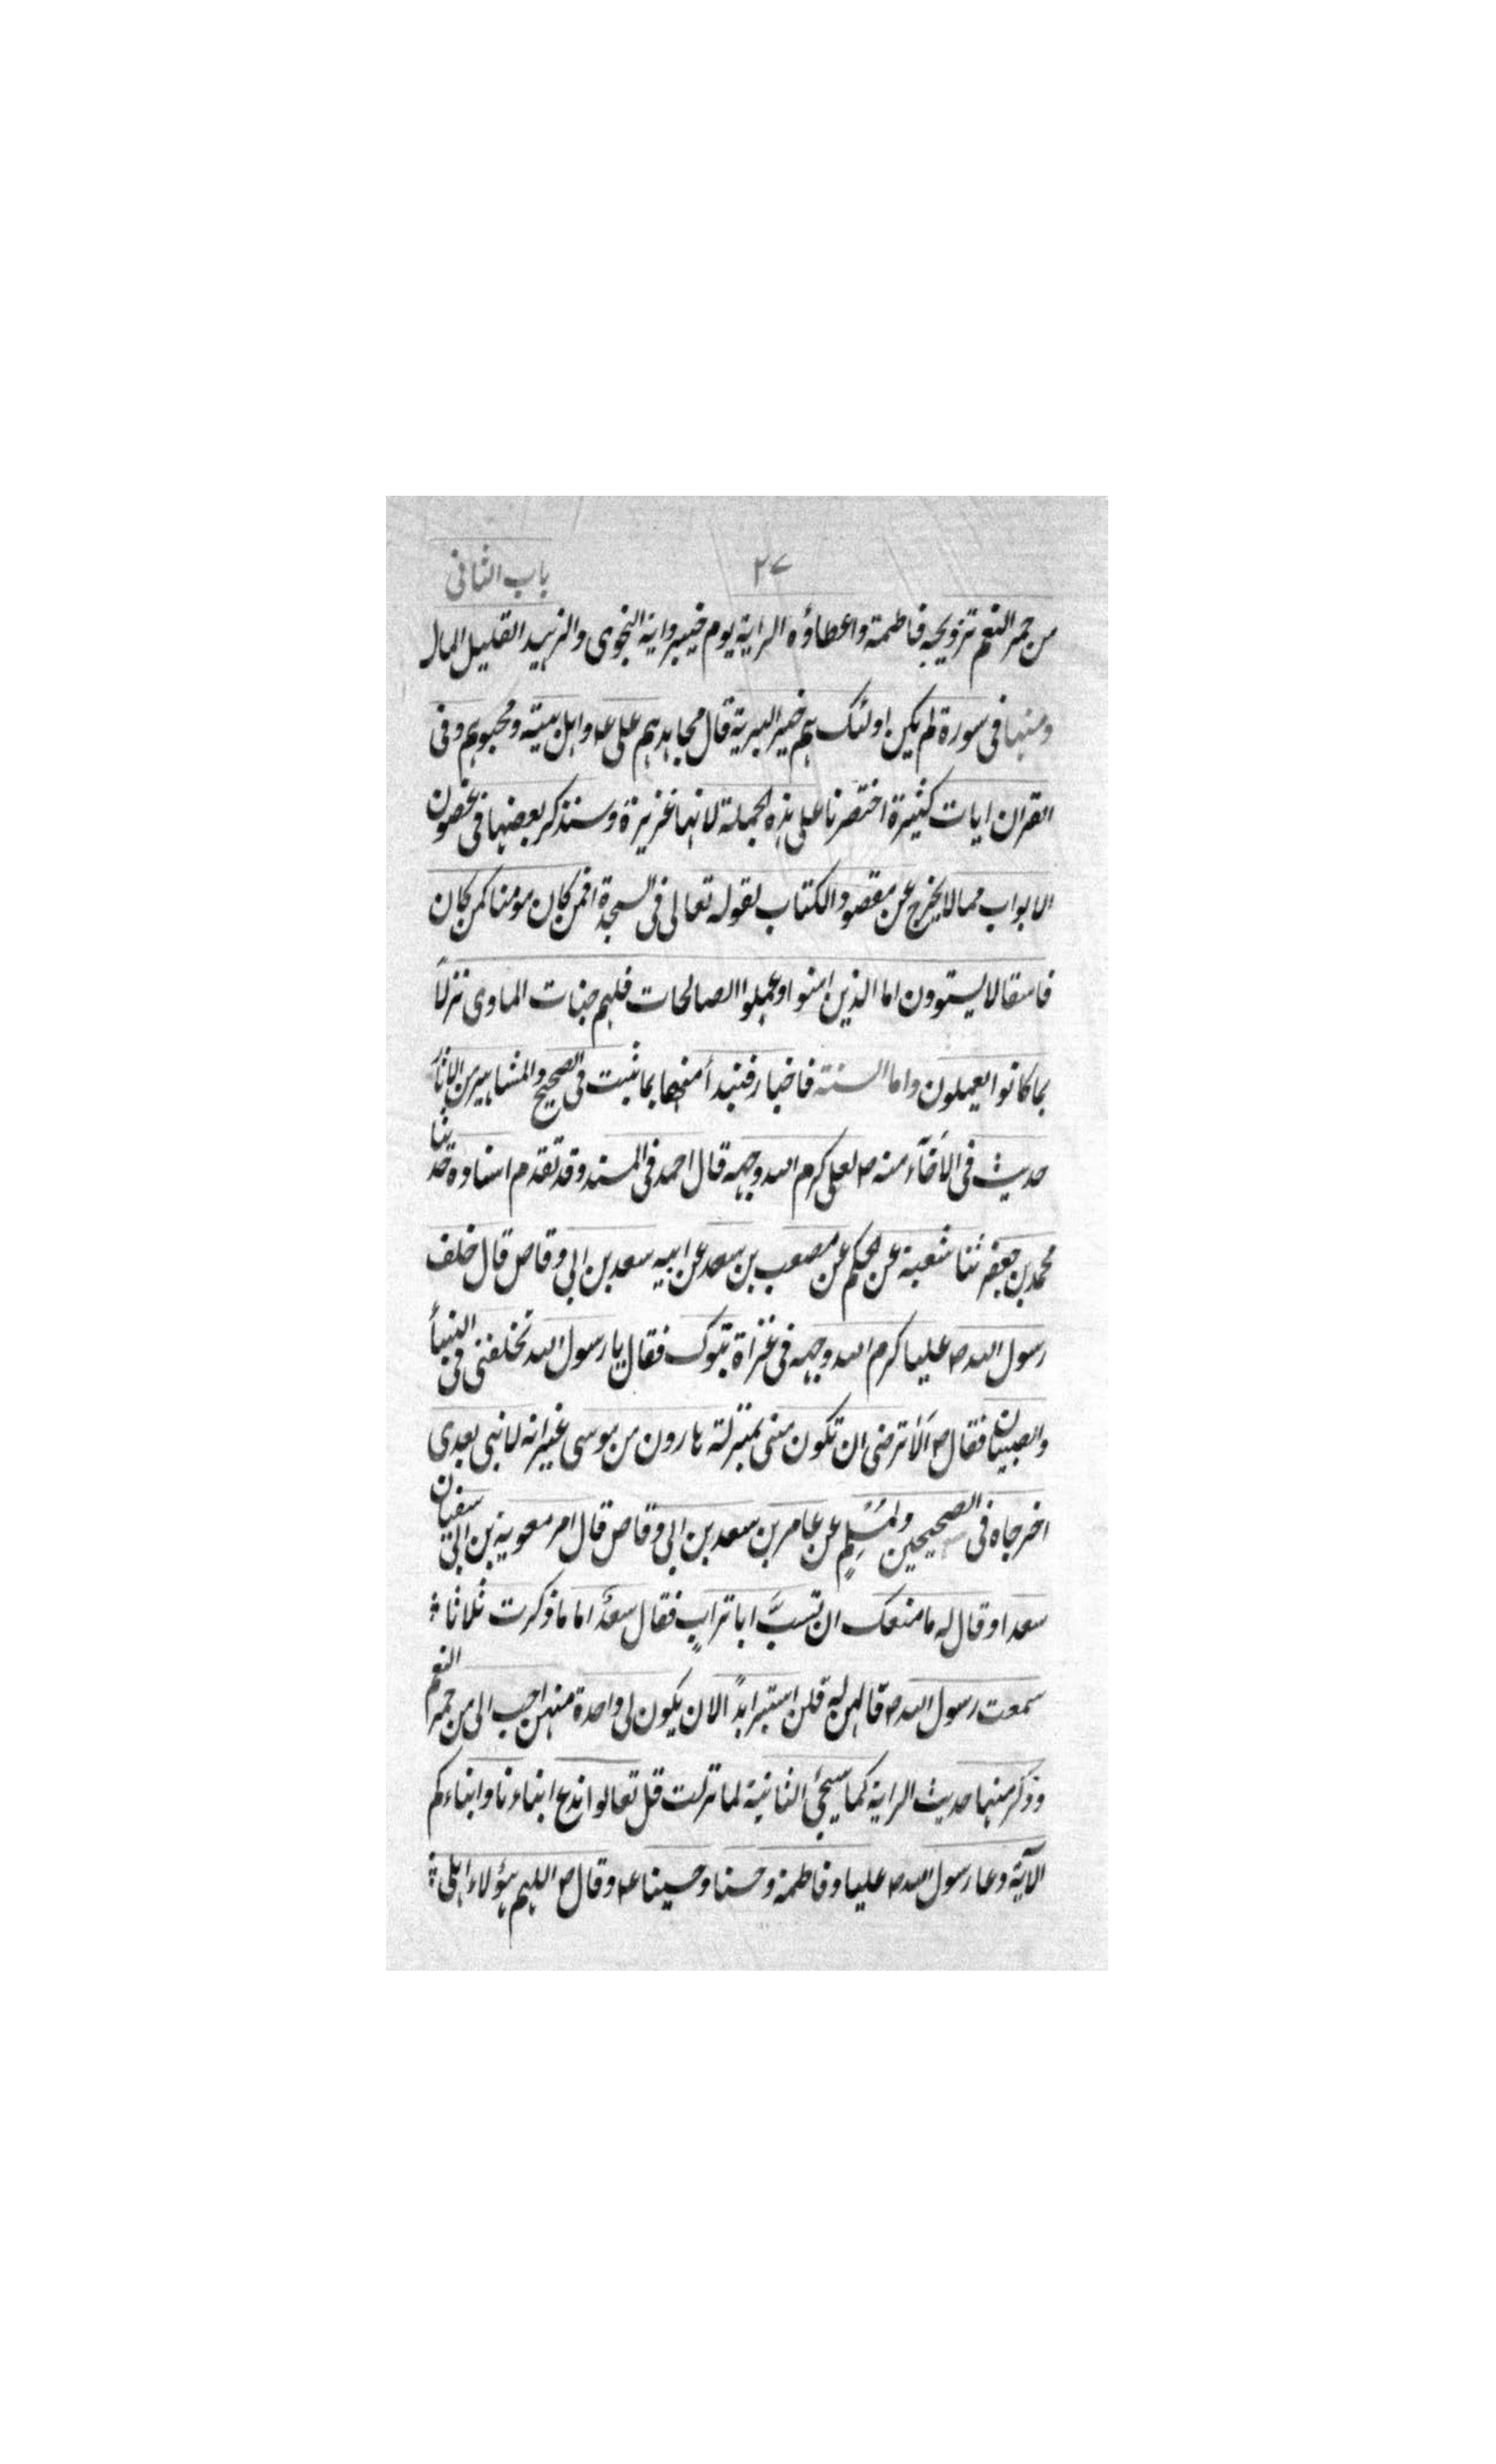 ٢٧ باب الثانی
من حمر النعم تزويجه فاطمة واعطاؤه الراية يوم خيبر واية النجوى والزهيد القليل المال
ومنها فى سورة لم يكن اولئك هم خير البرية قال مجاهد هم على ع واهل بيته ومحبوهم وفى
القران ايات كثيرة اختصرنا على هذه الجملة لانها غزيرة وسنذكر بعضها فى غضون
الابواب مما لا يخرج عن مقصود الكتاب لقوله تعالى فى السجدة افمن كان مومنا كمن كان
فاسقا لا يستوون اما الذين امنوا وعملوا الصالحات فلهم جنات الماوى نزلاً
بما كانوا يعملون واما السنة فاخبار فنبدأ منها بما ثبت فى الصحيح والمشاهير من الاثار
حديث فى الأخآء منه ص لعلى كرم الله وجهه قال احمد فى المسند وقد تقدم اسناده حدثنا
محمد بن جعفر ثنا شعبة عن الحكم عن مصعب بن سعد عن ابيه سعد بن ابى وقاص قال خلف
رسول الله ص عليا كرم الله وجهه فى غزاة تبوك فقال يا رسول الله تخلفنى فى النسأ
والصبيان فقال ص اَلَا ترضى ان تكون منى بمنزلة هارون من موسى غير انه لا نبى بعدى
اخرجاه فى الصحيحين ولمُسْلِمٍ عن عامر بن سعد بن ابى وقاص قال امر معوية بن ابى سفيان
سعدا وقال له ما منعك ان تسبَّ ابا ترابٍ فقال سعدٌ اما ما ذكرت ثلاثا
سمعت رسول الله ص قالهن له فلن استبه ابدًا لان يكون لى واحدة منهن احب الى من حمر النعم
وذكر منها حديث الراية كما سيجئ الثانية لما نزلت قل تعالوا ندع ابناءنا وابناءكم
الآية دعا رسول الله ص عليا وفاطمة وحسنا وحسينا ع وقال ص اللهم هؤلاء اهلى